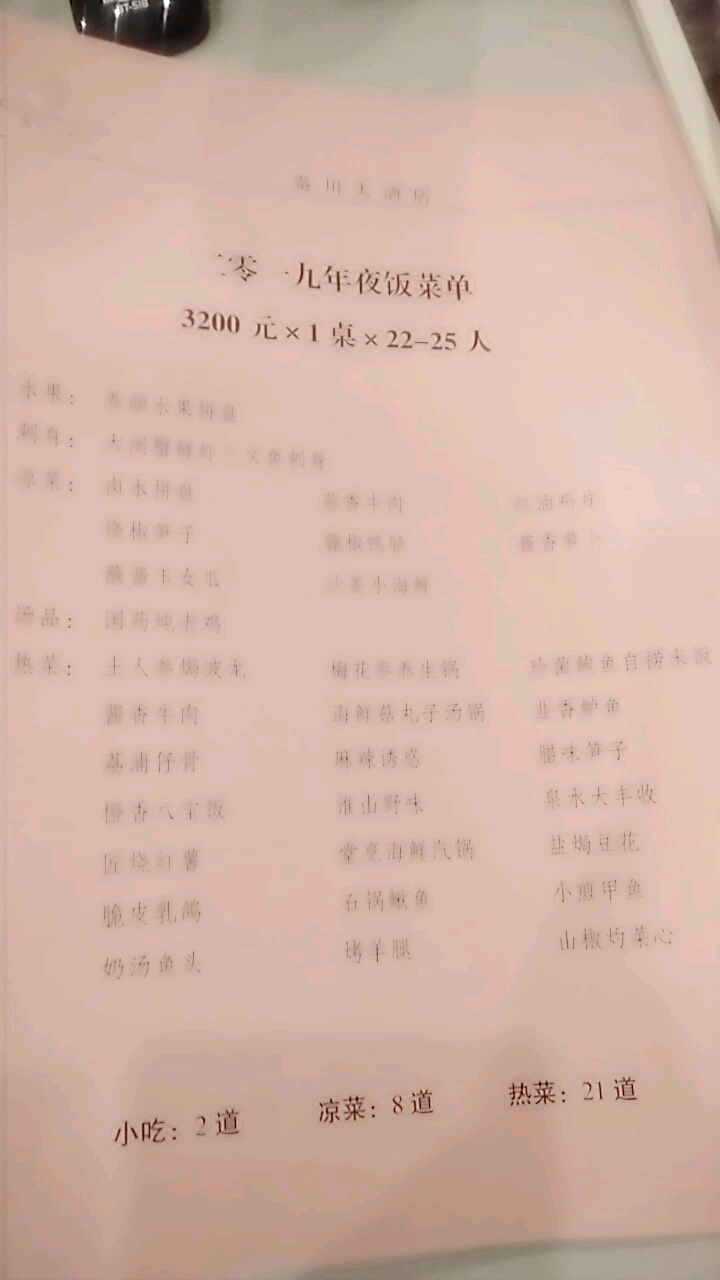 秦川大酒店
二零一九年夜饭菜单
3200 元×1 桌×22-25 人
水果： 养颜水果拼盘
刺身： 大闸蟹鲜虾三文鱼刺身
凉菜： 卤水拼盘 蒜香牛肉 红油鸡片
烧椒笋子 藤椒鸭胗 酱香萝卜
蘸酱玉女瓜 沙姜小海鲜
汤品： 国药炖老鸡
热菜： 土人参焗波龙 梅花参养生锅 珍菌鲍鱼自捞米饭
酱香牛肉 海鲜菇丸子汤锅 韭香鲈鱼
荔浦仔骨 麻辣诱惑 腊味笋子
橙香八宝饭 淮山野味 泉水大丰收
匠烧红薯 堂烹海鲜汽锅 盐焗豆花
脆皮乳鸽 石锅鳅鱼 小煎甲鱼
奶汤鱼头 烤羊腿 山椒灼菜心
小吃：2 道 凉菜：8 道 热菜：21 道